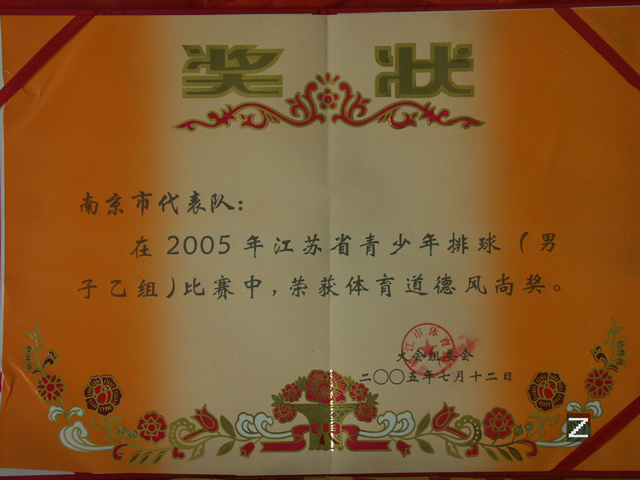 奖状
南京市代表队：
在2005年江苏省青少年排球（男
子乙组）比赛中，荣获体育道德风尚奖。
大会组委会
二〇〇五年七月十二日
Z